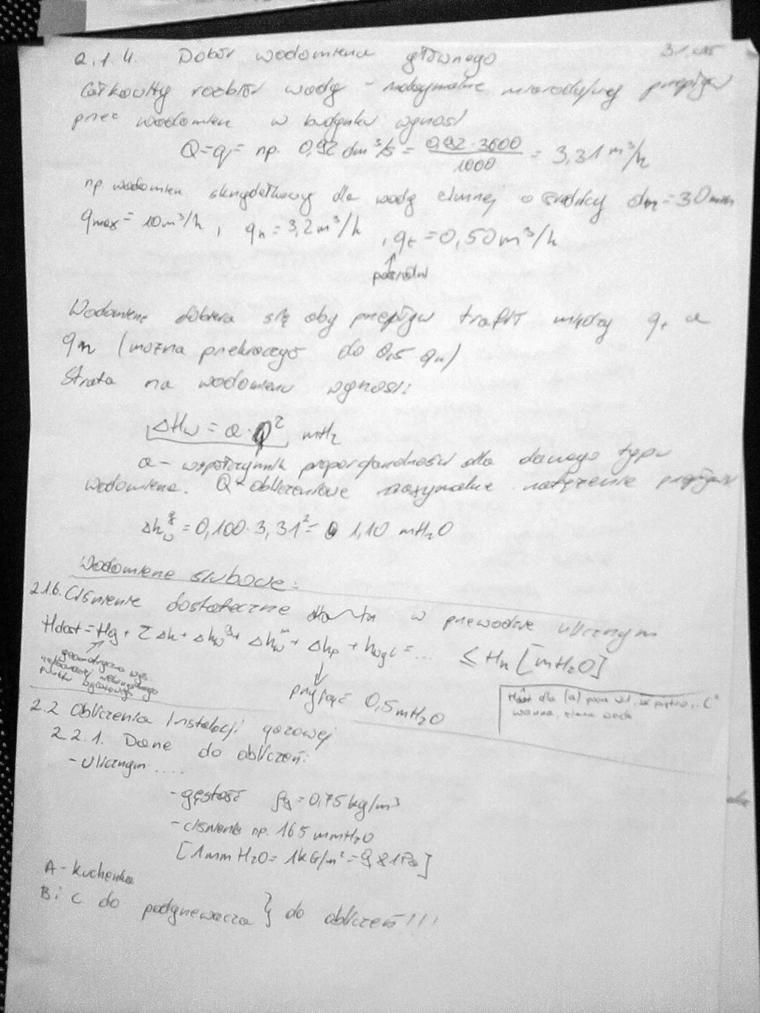 2.1.4. Dobór wodomierza głównego
Całkowity rozbiór wody - maksymalnie miarodajny przepływ
przez wodomierz w budynku wynosi
Q=q= np. 0,92 dm³/s = 0,92·3600/1000 = 3,31 m³/h
np. wodomierz skrzydełkowy dla wody zimnej o średnicy dn=30mm
qmax = 10m³/h, qn = 3,2m³/h, qt = 0,50m³/h
pośredni
Wodomierz dobiera się aby przepływ trafił między qt a
qn (można przekroczyć do 0,5 qn)
Strata na wodomierzu wynosi:
ΔHw = a·Q² mH₂
a - współczynnik proporcjonalności dla danego typu
wodomierza. Q - obliczeniowe maksymalne natężenie przepływu
Δhw = 0,100·3,31² = 1,10 mH₂O
Wodomierze śrubowe:
2.1.6. Ciśnienie dostateczne w przewodzie ulicznym
Hdost = Hg + ΣΔh + Δhw + Δhw + Δhp + hwyl = ... ≤ Hn [mH₂O]
geometryczna wys.
przyjąć 0,5mH₂O
dla (a) wanna, zimna woda
2.2 Obliczenia instalacji gazowej
2.2.1. Dane do obliczeń:
- ulicznym ....
- gęstość ρg = 0,75 kg/m³
- ciśnienie np. 165 mmH₂O
[1mmH₂O = 1kG/m² = 9,81Pa]
A - kuchenka
B i C do podgrzewacza } do obliczeń!!!